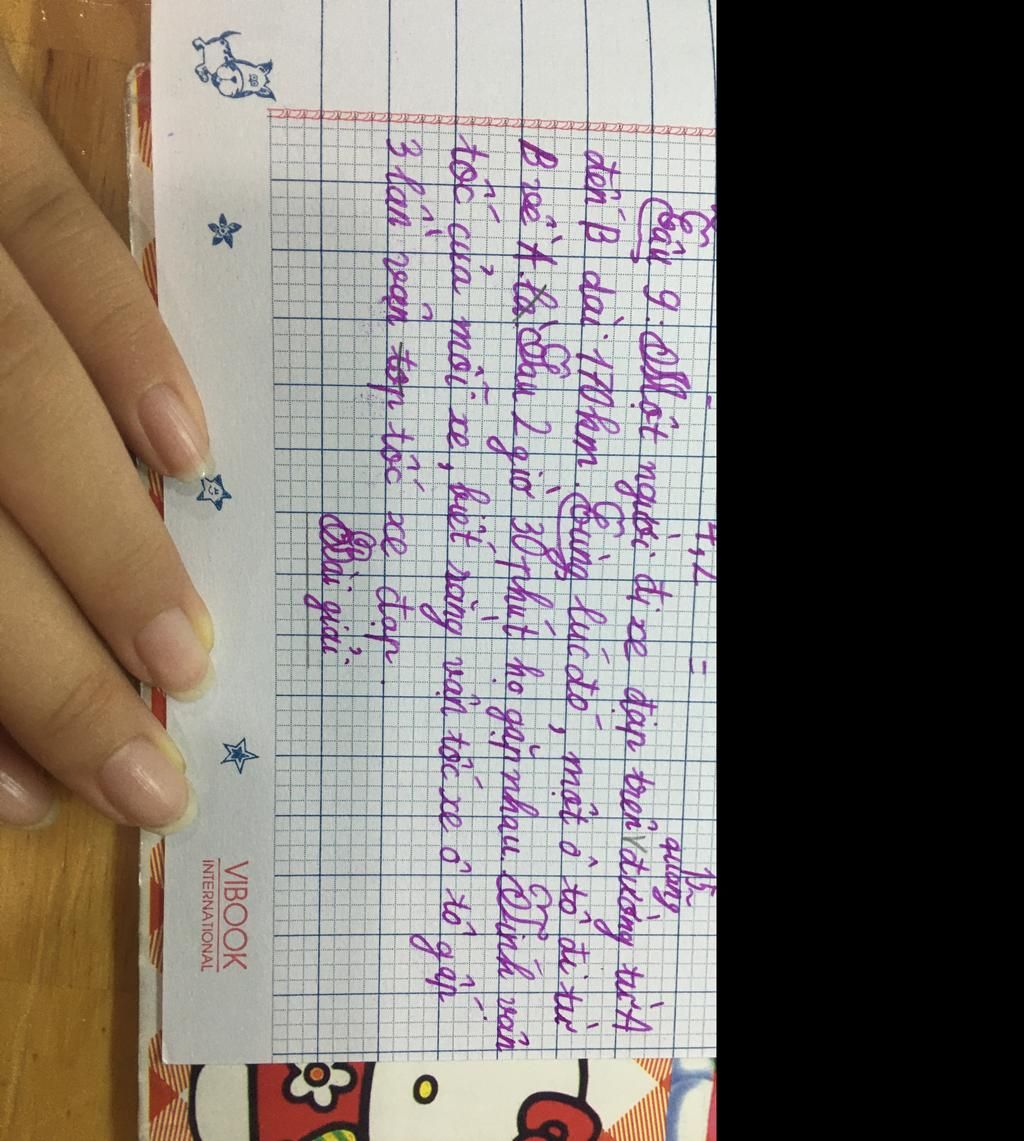 4,2 =
15
quãng
Câu 9. Một người đi xe đạp trên v đường từ A
đến B dài 170km. Cùng lúc đó, một ô tô đi từ
B về A. là Sau 2 giờ 30 phút họ gặp nhau. Tính vận
tốc của mỗi xe, biết rằng vận tốc xe ô tô gấp
3 lần vận top tốc xe đạp.
Bài giải:
VIBOOK
INTERNATIONAL